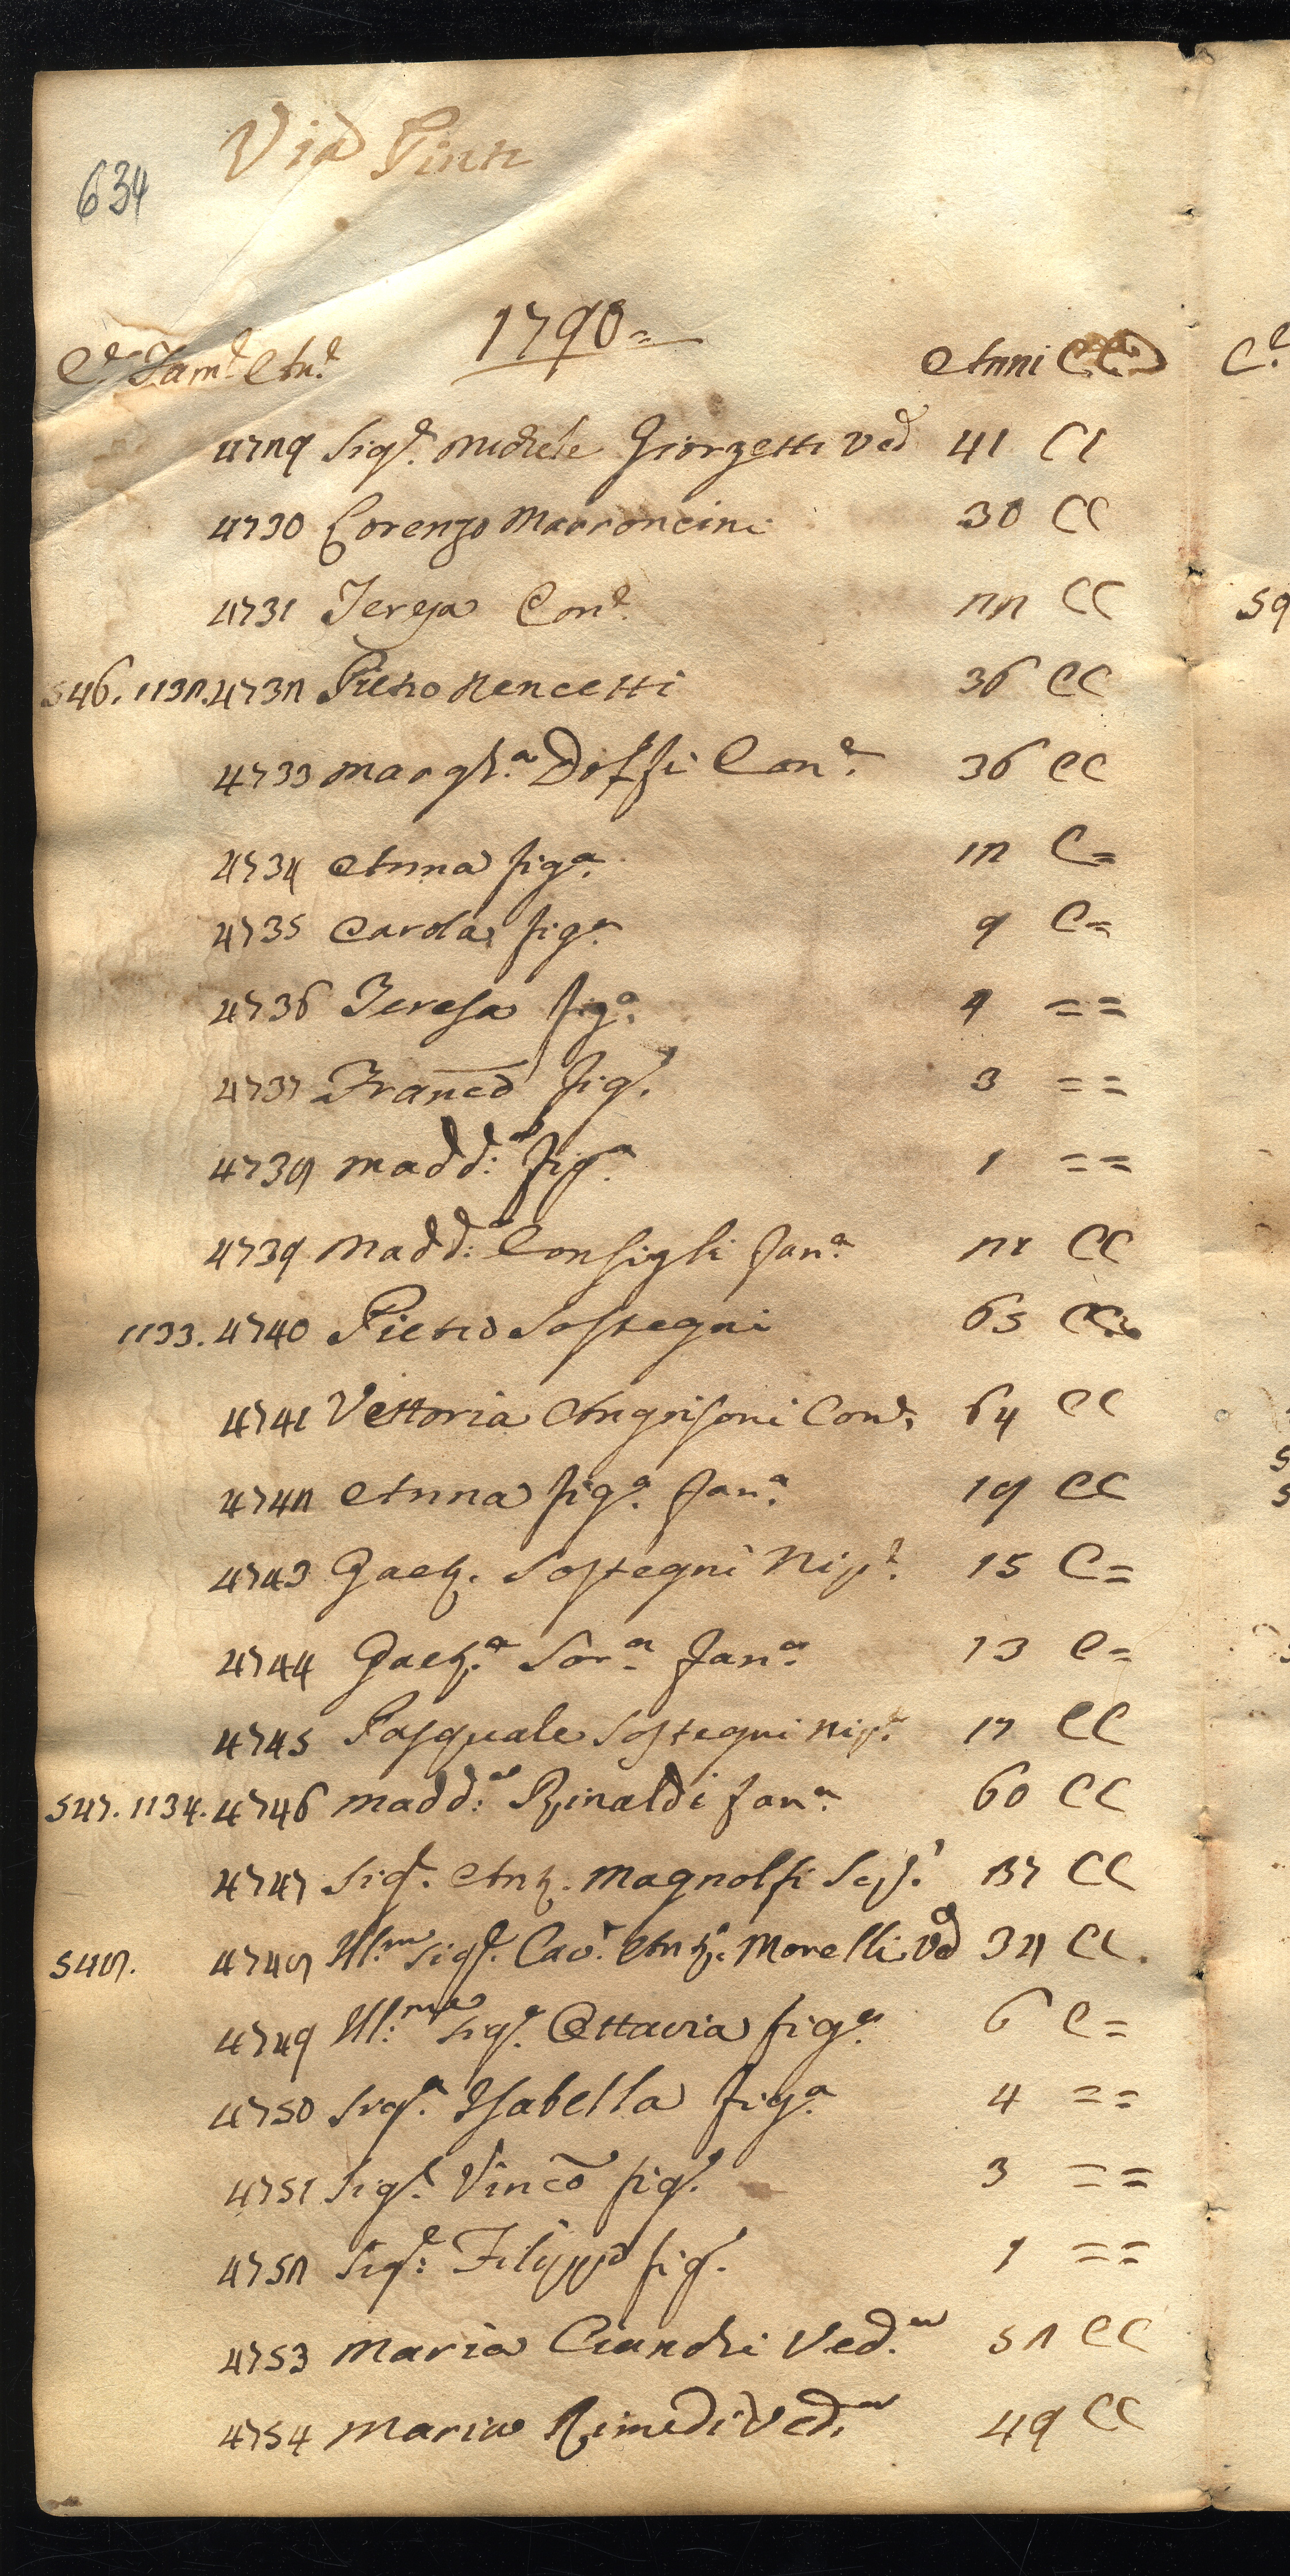 Via Pinti
634
1790=
C.e Fam.e An.e Anni CC
4729 Sig.e Michele Giorgetti Ved 41 CC
4730 Lorenzo Marroncini 30 CC
4731 Teresa Con.e 22 CC
546. 1132. 4732 Pietro Nencetti 36 CC
4733 Margh.a Dolfi Con.e 36 CC
4734 Anna fig.a 12 C=
4735 Carola fig.a 9 C=
4736 Teresa fig.a 4 ==
4737 Franco fig.o 3 ==
4738 Madd:a fig.a 1 ==
4739 Madd:a Consigli fan.a 21 CC
1133. 4740 Pietro Sostegni 65 CC
4741 Vettoria Angrisoni Con.e 64 CC
4742 Anna fig.a fan.a 19 CC
4743 Gaet. Sostegni Nip.e 15 C=
4744 Gaet.a Sor.a fan.a 13 C=
4745 Pasquale Sostegni Nip.e 17 CC
547. 1134. 4746 Madd:a Rinaldi fan.a 60 CC
4747 Sig.e Ant. Magnolfi 37 CC
548. 4748 Ill.mo Sig.e Cav.r Ant.o Morelli Vd 32 CC.
4749 Ill:ma Sig.a Ottavia fig.a 6 C=
4750 Sig.a Isabella fig.a 4 ==
4751 Sig.e Vinco fig.o 3 ==
4752 Sig.e: Filippo fig.o 1 ==
4753 Maria Cianchi Ved.a 52 CC
4754 Maria Rimedi Ved.a 49 CC